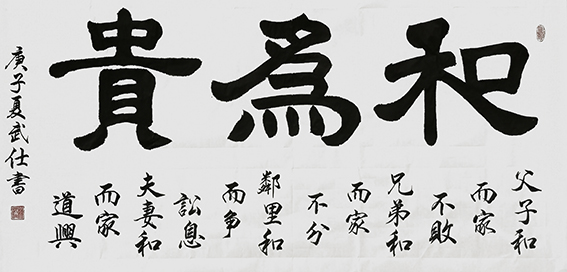 和為貴
父子和
而家
不敗
兄弟和
而家
不分
鄰里和
而争
訟息
夫妻和
而家
道興
庚子夏武仕書